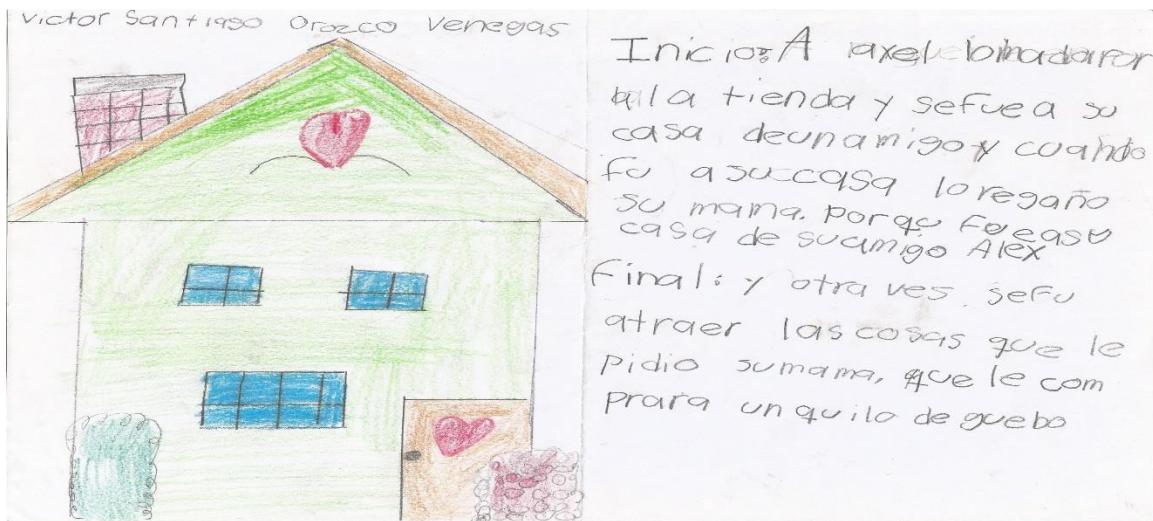 Victor Santiago Orozco Venegas
Inicio: A axel lo madaron
a la tienda y sefue a su
casa deunamigo y cuando
fu a su casa loregaño
su mama. porqu Fue asu
casa de suamigo Alex
Final: y otra ves sefu
atraer las cosas que le
pidio sumama, que le com
prara un quilo de guebo